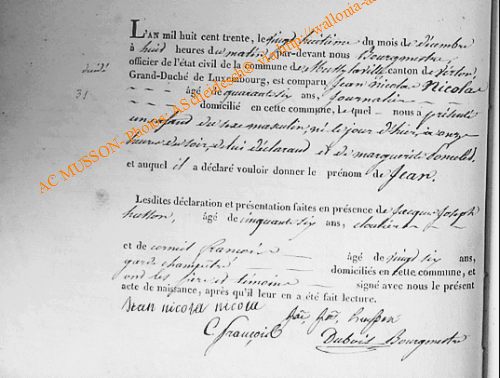 L'AN mil huit cent trente, le vingt huitième du mois de décembre
à huit heures du matin, par-devant nous Bourgmestre
officier de l'état civil de la commune de canton de Virton,
Grand-Duché de Luxembourg, est comparu Jean Nicolas Nicolas
âgé de quarante six ans, journalier
domicilié en cette commune, lequel nous a présenté
un enfant du sexe masculin, né le jour d'hier, à onze
heures du soir, de lui déclarant et de marguerite
et auquel il a déclaré vouloir donner le prénom de Jean.
Lesdites déclaration et présentation faites en présence de Jacques Joseph
hutton, âgé de cinquante six ans, cloutier
et de corneil françois âgé de vingt six ans,
garde champêtre domiciliés en cette commune, et
ont les père et témoins signé avec nous le présent
acte de naissance, après qu'il leur en a été fait lecture.
Jean nicola nicola
C françois Dubois Bourgmestre
31
AC MUSSON-Photos A Scheideck